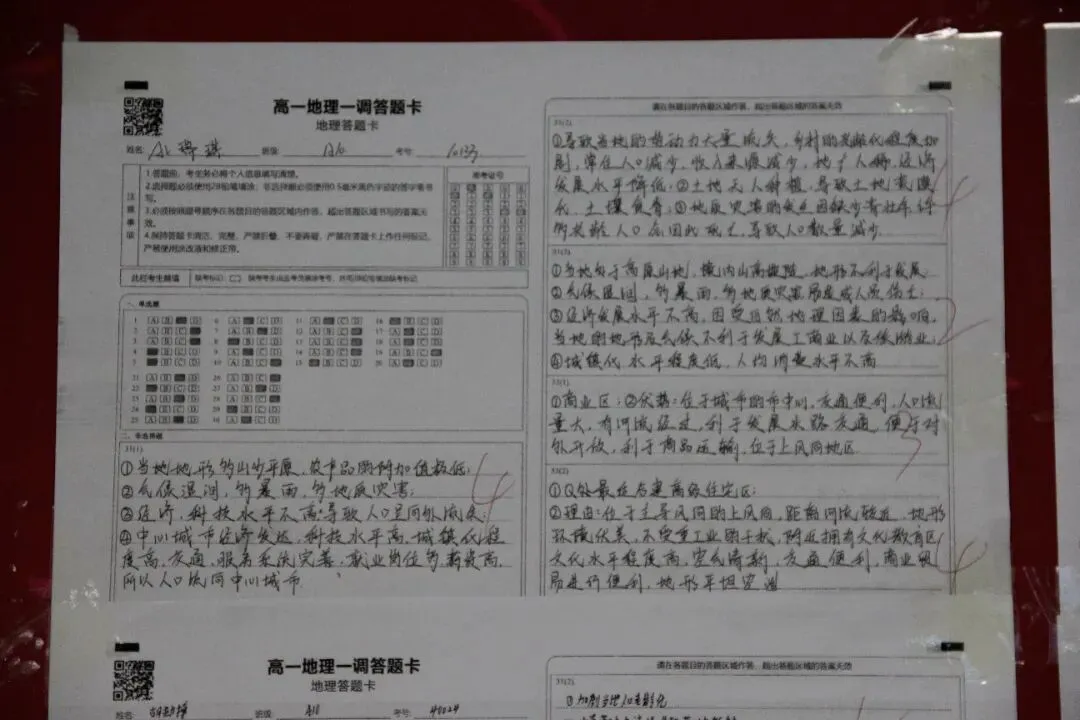 高一地理一调答题卡
地理答题卡
姓名:
班级:
A10
考号:
10133
注意事项
1.答题前,考生务必将个人信息填写清楚。
2.选择题必须使用2B铅笔填涂,非选择题必须使用0.5毫米黑色字迹的签字笔书写。
3.必须按照题号顺序在各题目的答题区域内作答,超出答题区域书写的答案无效。
4.保持答题卡清洁、完整,严禁折叠,严禁在答题卡上作任何标记,严禁使用涂改液和修正带。
准考证号
此栏考生禁填
缺考标记:
一、单选题
二、非选择题
31(1)
①当地地形多山少平原,农产品的附加值较低;
②气候湿润,多暴雨,多地质灾害;
③经济,科技水平不高,导致人口向外流失;
④中心城市经济发达,科技水平高,城镇化程
度高,交通,服务系统完善,就业岗位多,薪资高,
所以人口流向中心城市
4
请在各题目的答题区域作答,超出答题区域的答案无效
31(2)
①导致当地的劳动力大量流失,乡村的老龄化程度加
剧,常住人口减少,收入来源减少,地广人稀,经济
发展水平降低;②土地无人种植,导致土地荒漠
化,土壤
导致人口数量减少
4
31(3)
①当地多于高原山地,境内山高坡陡,地形不利于发展
②气候湿润,多暴雨,多地质灾害易造成人员伤亡;
③经济发展水平不高,因受自然地理因素的影响,
当地的地形及气候不利于发展工商业以及旅游业;
④城镇化水平程度低,人均消费水平不高
2
33(1)
①商业区;②优势:位于城市的市中心,交通便利,人口流
量大,有河流经过,利于发展水路交通,便于对
外开放,利于商品运输,位于上风向地区
3
33(2)
①Q处最适合建高级住宅区;
②理由:位于主导风向的上风向,距离河流较近,地形
环境优美,不受重工业的干扰,附近拥有文化教育区
文化水平程度高,空气清新,交通便利,商业贸
易进行便利,地形平坦
4
高一地理一调答题卡
地理答题卡
姓名:
班级:
A10
考号:
请在各题目的答题区域作答,超出答题区域的答案无效
31(2)